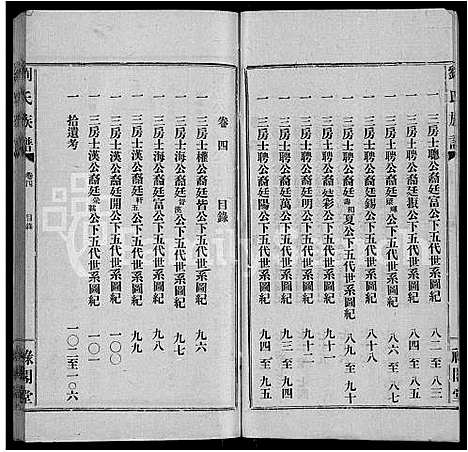 劉氏族譜
一 三房士聰公裔廷富公下五代世系圖紀 八二 至 八三
一 三房士聘公裔廷振公下五代世系圖紀 八四 至 八五
一 三房士聘公裔廷公下五代世系圖紀 八六 至 八七
一 三房士聘公裔廷錫公下五代世系圖紀 八七 至 八八
一 三房士聘公裔廷和壽夏公下五代世系圖紀 八九 至 九十
一 三房士聘公裔廷彩公下五代世系圖紀 九十一
一 三房士聘公裔廷明公下五代世系圖紀 九十二
一 三房士聘公裔廷萬公下五代世系圖紀 九二 至 九三
一 三房士聘公裔廷陽公下五代世系圖紀 九四 至 九五
祿閣堂
卷四 目錄
一 三房士權公裔廷皆公下五代世系圖紀 九六
一 三房士海公裔廷公下五代世系圖紀 九七
一 三房士海公裔廷富公下五代世系圖紀 九八
一 三房士漢公裔廷軒五公下五代世系圖紀 九九
一 三房士漢公裔廷開公下五代世系圖紀 一〇〇
一 三房士漢公裔廷公下五代世系圖紀 一〇一
一 拾遺考 一〇二 至 一〇六
劉氏族譜
卷四 目錄
祿閣堂